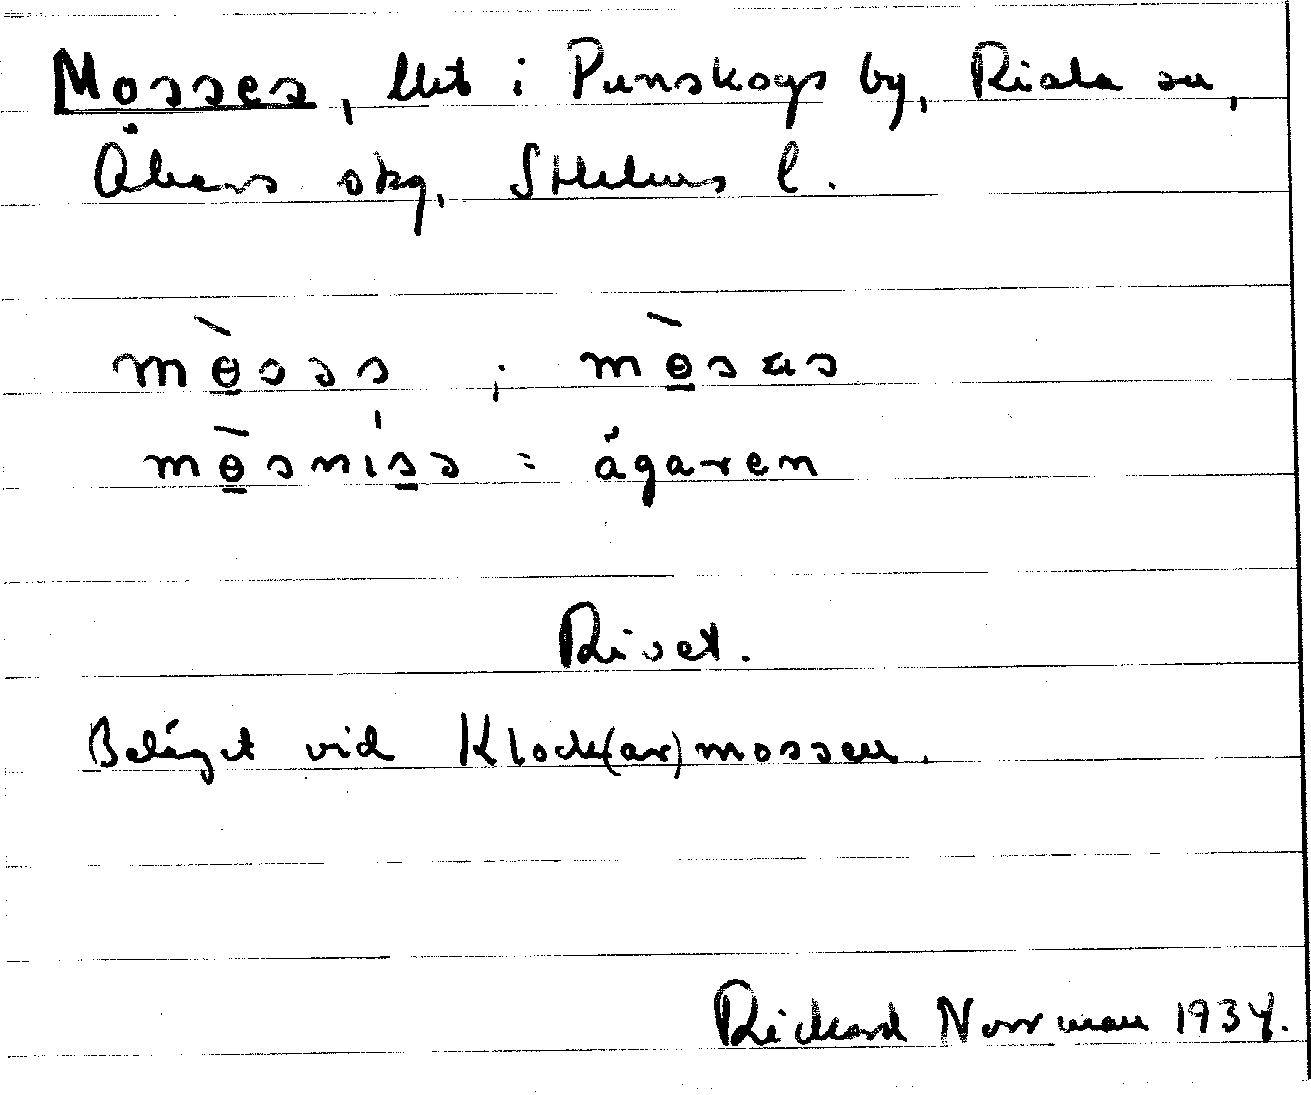 Mosses, lht i Penskogs by, Riala sn,
Åkers skg, Sthlms l.
mɵ̀səs ; mɵ̀sas
mɵ̀snisə = ägaren
Rivet.
Beläget vid Klock(ar)mossen.
Rickard Norrman 1934.